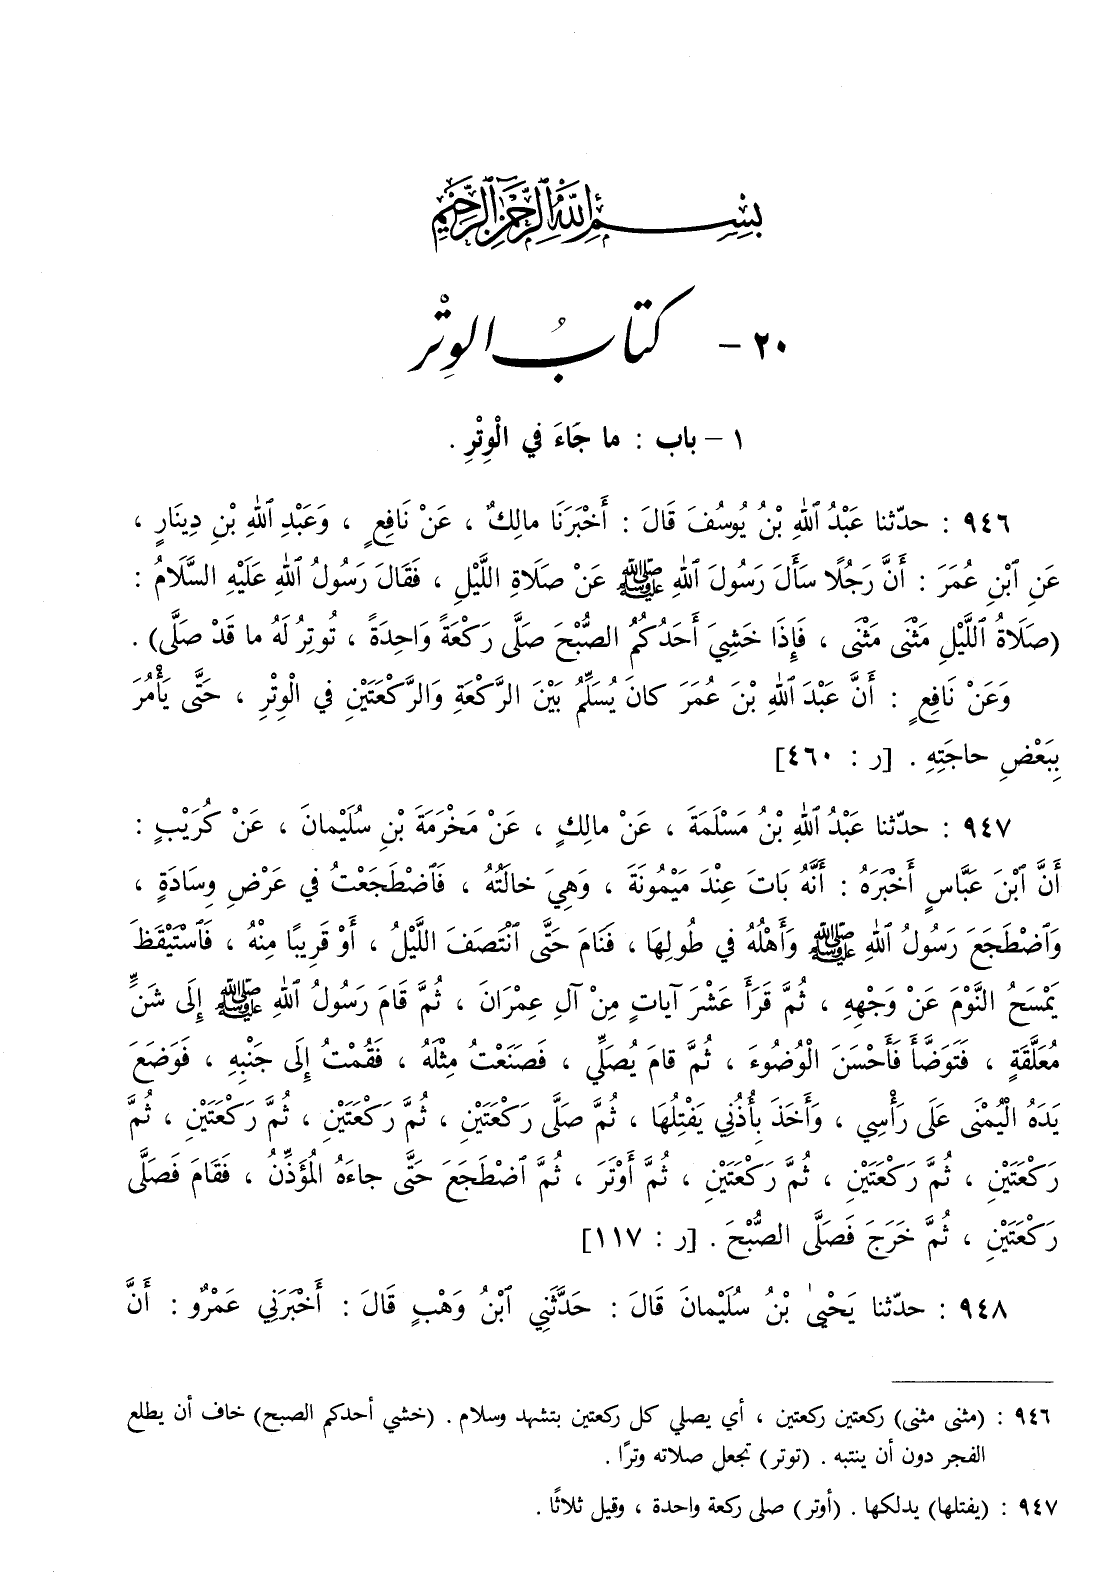 بِسْمِ اللهِ الرَّحْمٰنِ الرَّحِيْمِ
٢٠ - كتابُ الوِتْر
١ - باب : ما جَاءَ في الْوِتْرِ .
٩٤٦ : حدّثنا عَبْدُ ٱللهِ بْنُ يُوسُفَ قَالَ : أَخْبَرَنَا مالِكٌ ، عَنْ نَافِعٍ ، وَعَبْدِ ٱللهِ بْنِ دِينَارٍ ،
عَنِ ٱبْنِ عُمَرَ : أَنَّ رَجُلًا سَأَلَ رَسُولَ ٱللهِ ﷺ عَنْ صَلَاةِ اللَّيْلِ ، فَقَالَ رَسُولُ ٱللهِ عَلَيْهِ السَّلَامُ :
(صَلَاةُ ٱللَّيْلِ مَثْنَى مَثْنَى ، فَإِذَا خَشِيَ أَحَدُكُمُ الصُّبْحَ صَلَّى رَكْعَةً وَاحِدَةً ، تُوتِرُ لَهُ ما قَدْ صَلَّى) .
وَعَنْ نَافِعٍ : أَنَّ عَبْدَ ٱللهِ بْنَ عُمَرَ كانَ يُسَلِّمُ بَيْنَ الرَّكْعَةِ وَالرَّكْعَتَيْنِ في الْوِتْرِ ، حَتَّى يَأْمُرَ
بِبَعْضِ حاجَتِهِ . [ر : ٤٦٠]
٩٤٧ : حدّثنا عَبْدُ ٱللهِ بْنُ مَسْلَمَةَ ، عَنْ مالِكٍ ، عَنْ مَخْرَمَةَ بْنِ سُلَيْمانَ ، عَنْ كُرَيْبٍ :
أَنَّ ٱبْنَ عَبَّاسٍ أَخْبَرَهُ : أَنَّهُ بَاتَ عِنْدَ مَيْمُونَةَ ، وَهِيَ خالَتُهُ ، فَٱضْطَجَعْتُ في عَرْضِ وِسَادَةٍ ،
وَٱضْطَجَعَ رَسُولُ ٱللهِ ﷺ وَأَهْلُهُ في طُولِهَا ، فَنَامَ حَتَّى ٱنْتَصَفَ اللَّيْلُ ، أَوْ قَرِيبًا مِنْهُ ، فَٱسْتَيْقَظَ
يَمْسَحُ النَّوْمَ عَنْ وَجْهِهِ ، ثُمَّ قَرَأَ عَشْرَ آيَاتٍ مِنْ آلِ عِمْرَانَ ، ثُمَّ قَامَ رَسُولُ ٱللهِ ﷺ إِلَى شَنٍّ
مُعَلَّقَةٍ ، فَتَوَضَّأَ فَأَحْسَنَ الْوُضُوءَ ، ثُمَّ قامَ يُصَلِّي ، فَصَنَعْتُ مِثْلَهُ ، فَقُمْتُ إِلَى جَنْبِهِ ، فَوَضَعَ
يَدَهُ الْيُمْنَى عَلَى رَأْسِي ، وَأَخَذَ بِأُذُنِي يَفْتِلُهَا ، ثُمَّ صَلَّى رَكْعَتَيْنِ ، ثُمَّ رَكْعَتَيْنِ ، ثُمَّ رَكْعَتَيْنِ ، ثُمَّ
رَكْعَتَيْنِ ، ثُمَّ رَكْعَتَيْنِ ، ثُمَّ رَكْعَتَيْنِ ، ثُمَّ أَوْتَرَ ، ثُمَّ ٱضْطَجَعَ حَتَّى جاءَهُ الْمُؤَذِّنُ ، فَقَامَ فَصَلَّى
رَكْعَتَيْنِ ، ثُمَّ خَرَجَ فَصَلَّى الصُّبْحَ . [ر : ١١٧]
٩٤٨ : حدّثنا يَحْيىٰ بْنُ سُلَيْمانَ قَالَ : حَدَّثَنِي ٱبْنُ وَهْبٍ قَالَ : أَخْبَرَنِي عَمْرٌو : أَنَّ
٩٤٦ : (مثنى مثنى) ركعتين ركعتين ، أي يصلي كل ركعتين بتشهد وسلام . (خشي أحدكم الصبح) خاف أن يطلع
الفجر دون أن ينتبه . (توتر) تجعل صلاته وترًا .
٩٤٧ : (يفتلها) يدلكها . (أوتر) صلى ركعة واحدة ، وقيل ثلاثًا .